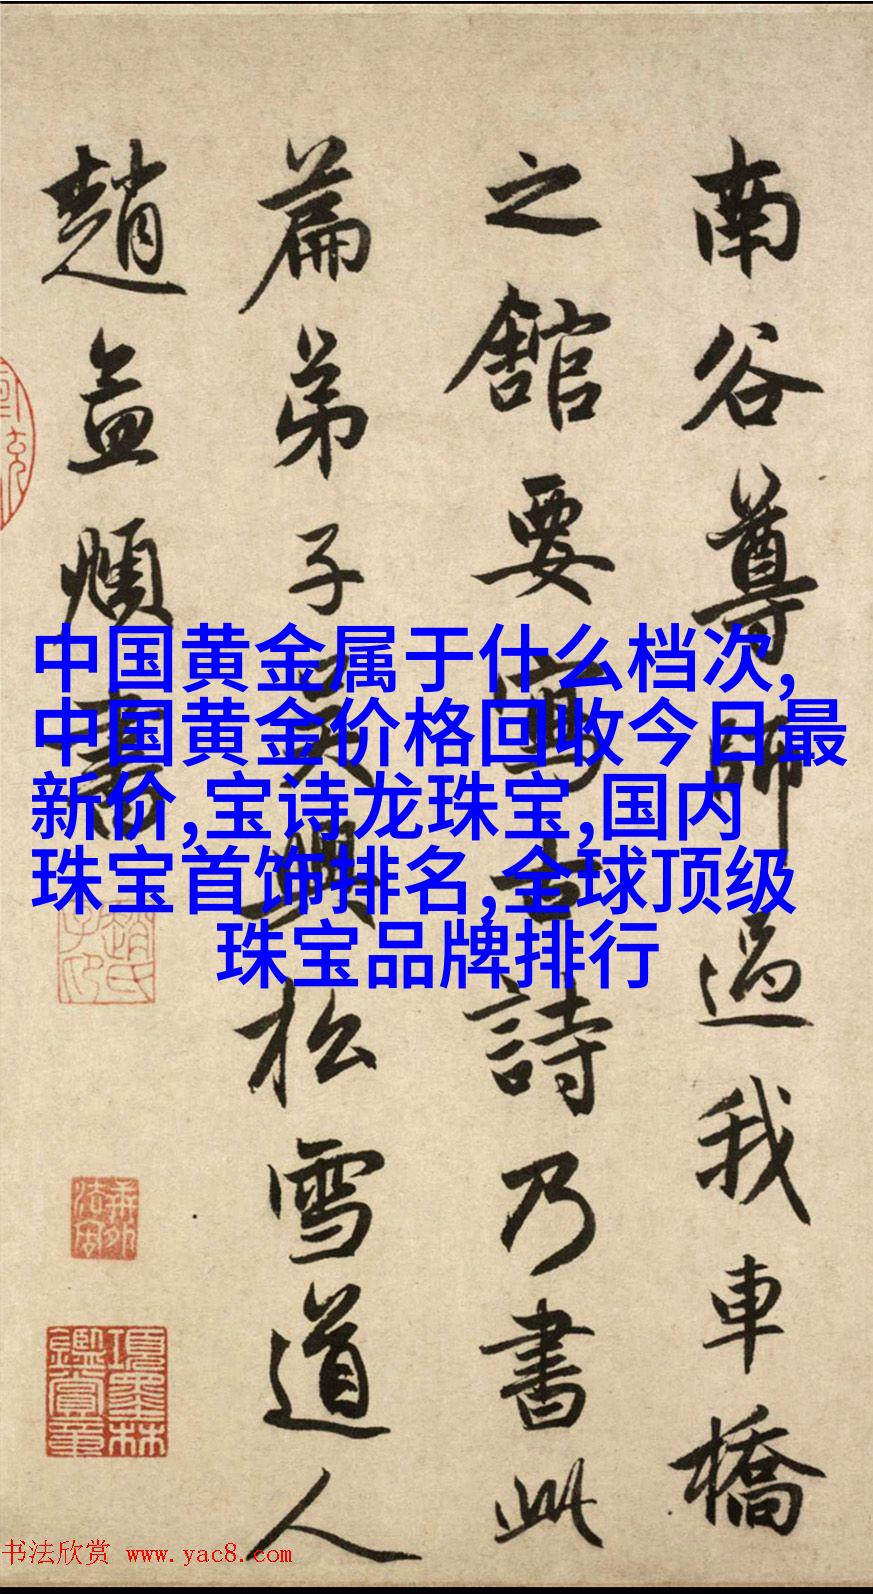 南谷尊師過我車橋
之館要寫古詩乃書此
篇弟子吴興松雪道人
趙孟頫書
中国黄金属于什么档次,
中国黄金价格回收今日最
新价,宝诗龙珠宝,国内
珠宝首饰排名,全球顶级
珠宝品牌排行
趙氏子印
項墨林鑑賞章
书法欣赏 www.yac8.com